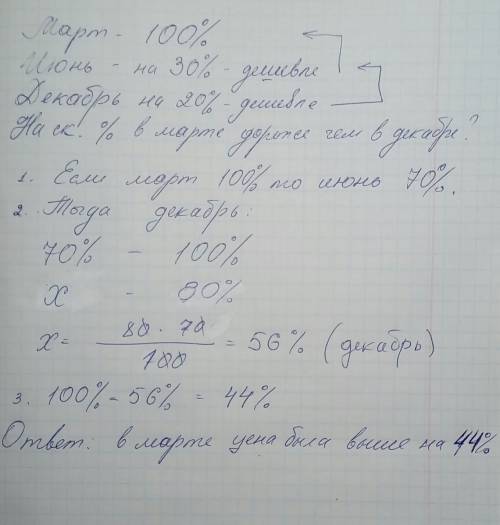 Март - 100%
Июнь - на 30% - дешевле
Декабрь на 20% - дешевле
На ск. % в марте дороже чем в декабре?
1. Если март 100% то июнь 70%.
2. Тогда декабрь:
70% - 100%
х - 80%
х = 80 · 70 / 100 = 56% (декабрь)
3. 100% - 56% = 44%
Ответ: в марте цена была выше на 44%